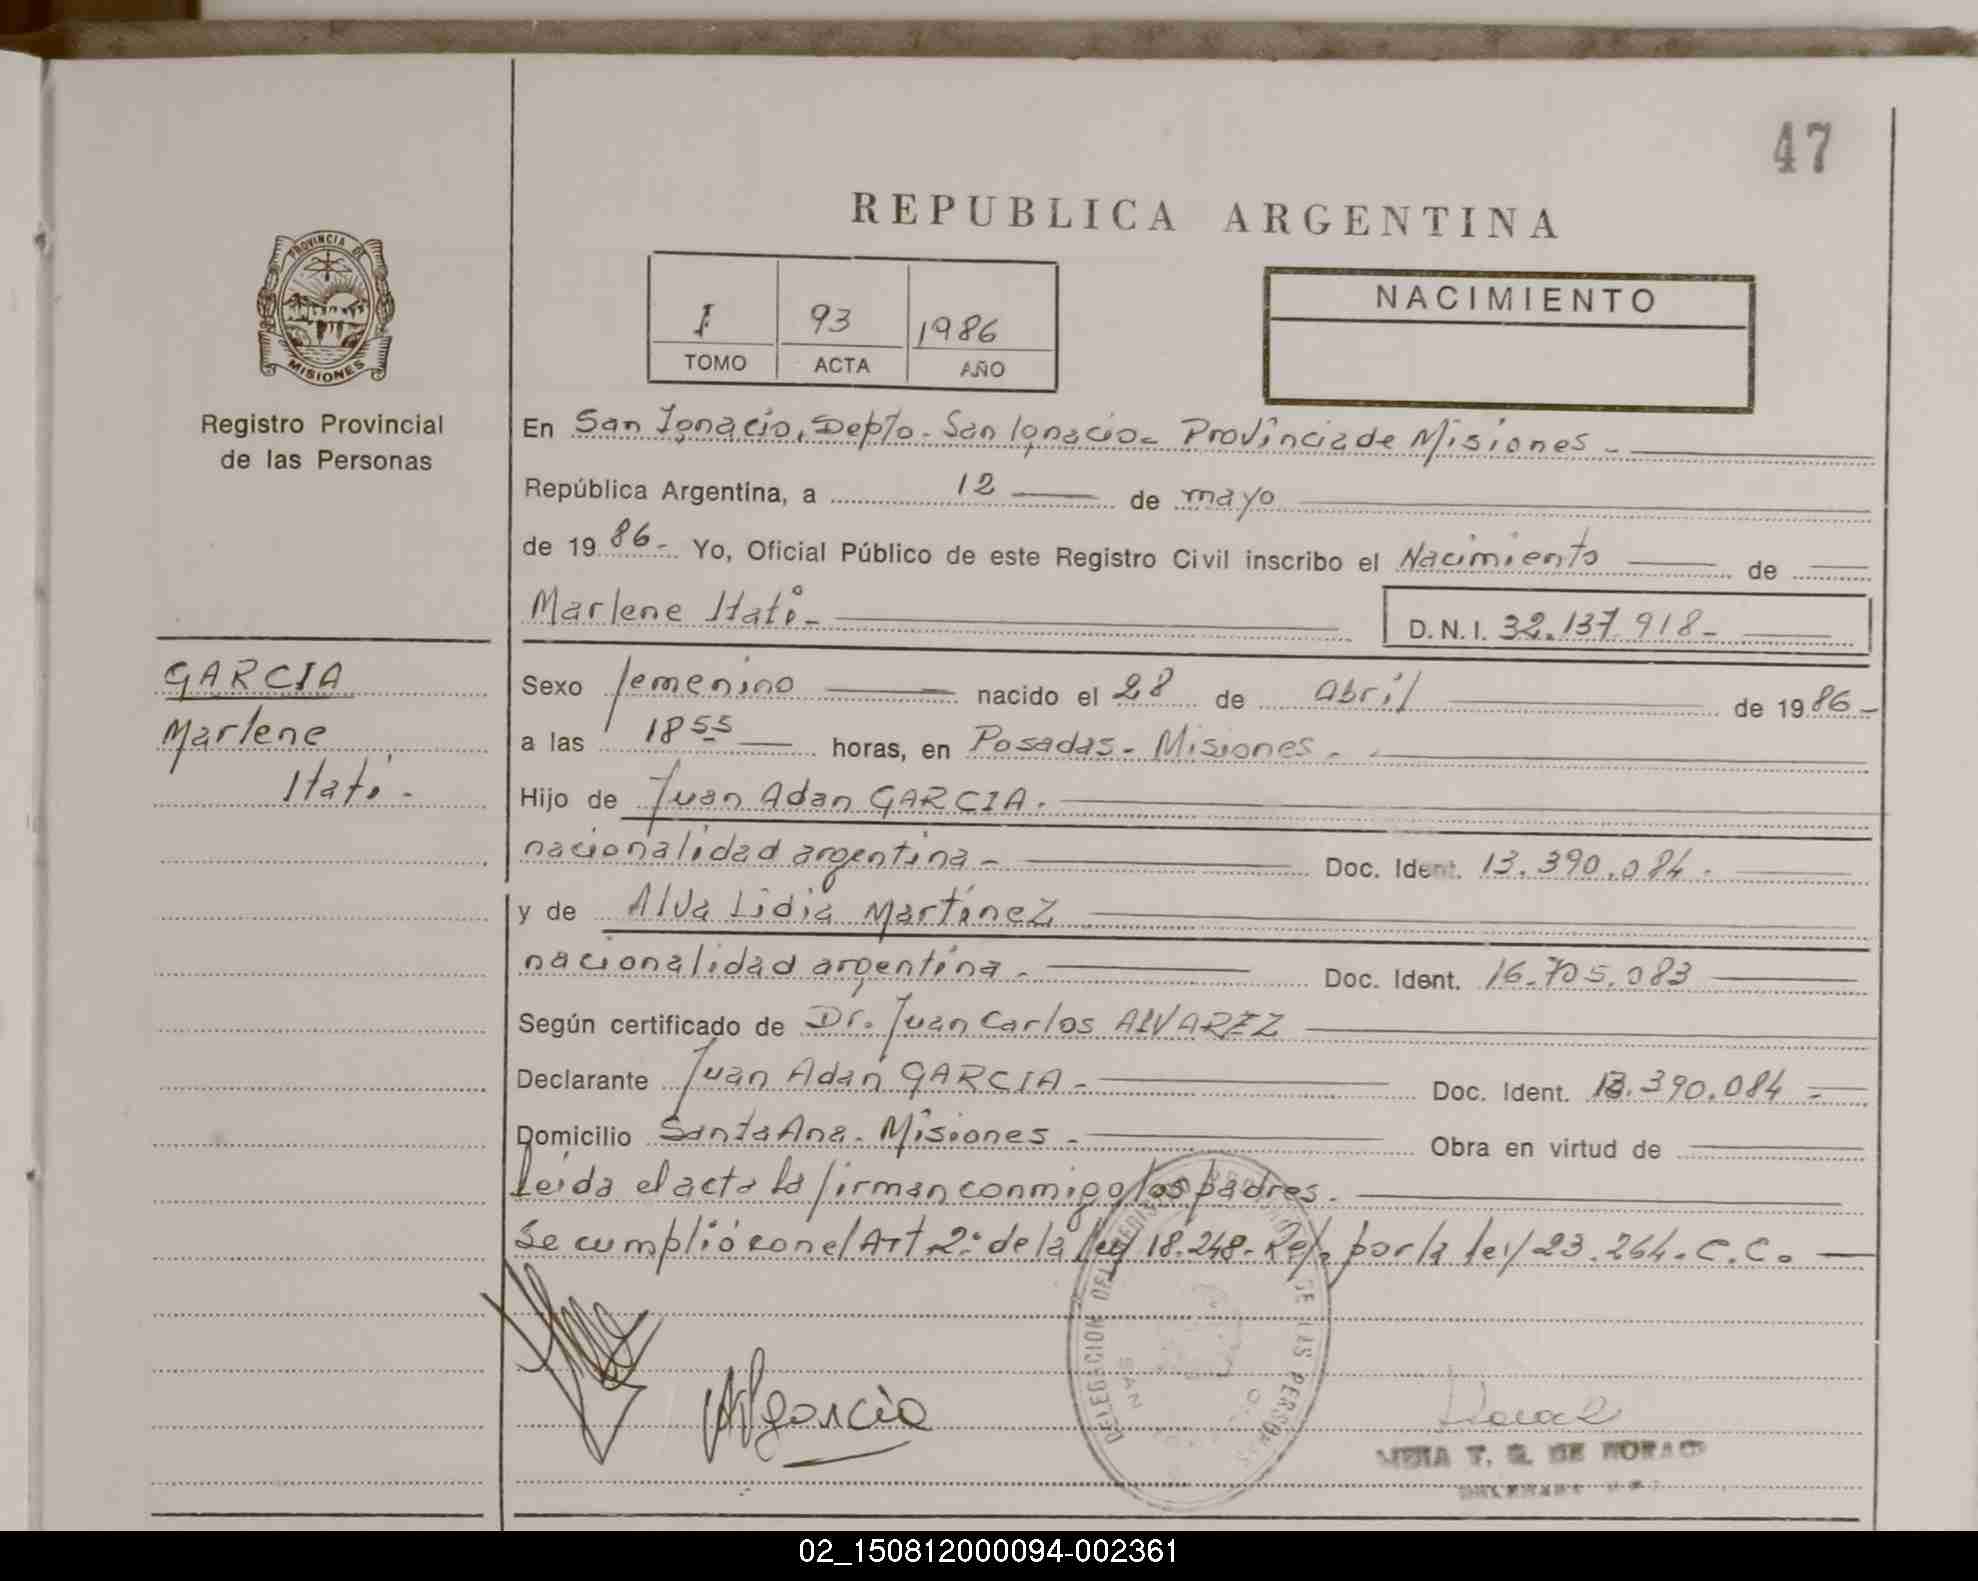 47
REPUBLICA ARGENTINA
PROVINCIA DE
MISIONES
Registro Provincial
de las Personas
I 93 1986
TOMO ACTA AÑO
NACIMIENTO
En San Ignacio, Depto. San Ignacio - Provincia de Misiones -
República Argentina, a 12 de mayo
de 1986 - Yo, Oficial Público de este Registro Civil inscribo el Nacimiento de
Marlene Itatí -
D.N.I. 32.137.918 -
GARCIA
Marlene
Itatí -
Sexo femenino nacido el 28 de abril de 1986 -
a las 18 55 horas, en Posadas - Misiones -
Hijo de Juan Adan GARCIA.
nacionalidad argentina - Doc. Ident. 13.390.084 -
y de Alva Lidia Martínez
nacionalidad argentina - Doc. Ident. 16.705.083
Según certificado de Dr. Juan Carlos ALVAREZ
Declarante Juan Adan GARCIA - Doc. Ident. 13.390.084 -
Domicilio Santa Ana - Misiones - Obra en virtud de
Leída el acta la firman conmigo los padres.
Se cumplió con el Art. 2º de la ley 18.248 - Ref. por la ley 23.264 - C.C.
garcia
DELEGACION DEL REGISTRO PROVINCIAL DE LAS PERSONAS
SAN IGNACIO
02_150812000094-002361